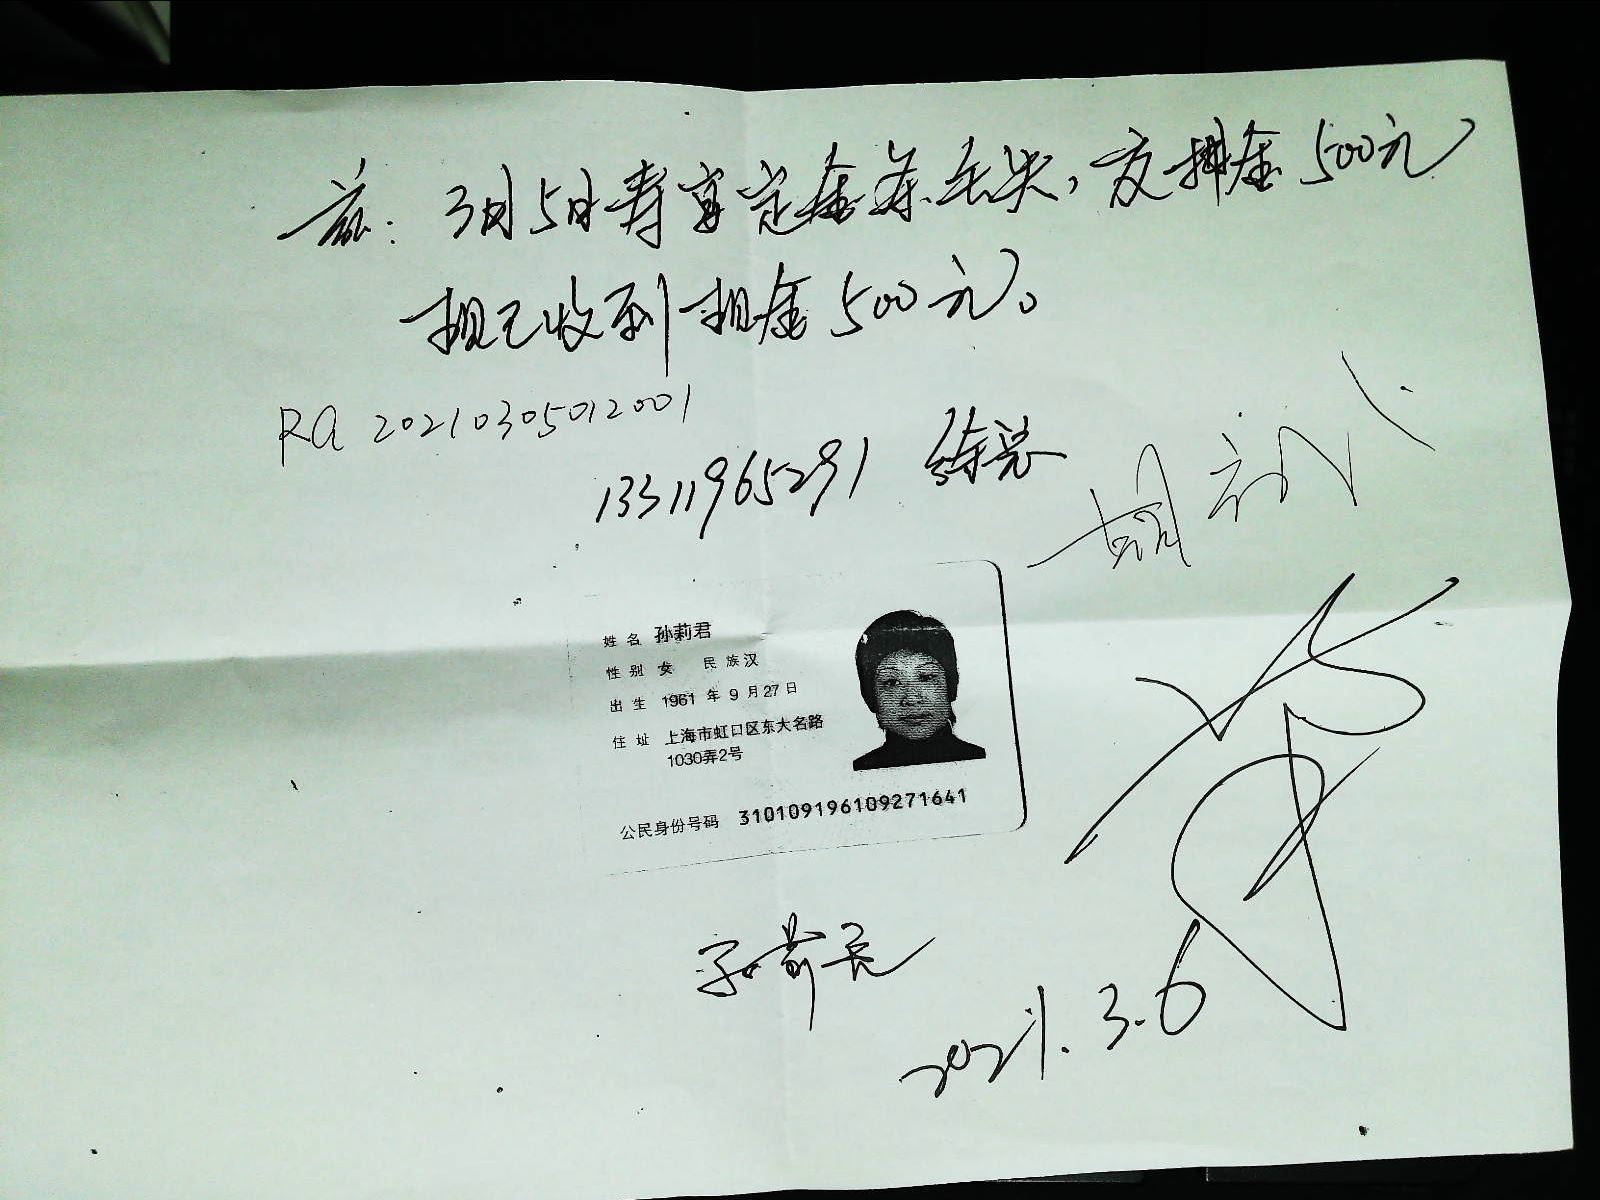 兹：3月5日寿宴定金条丢失，交押金500元
现已收到押金500元。
RA 20210305012001
13311965291 徐兴
姓名 孙莉君
性别 女 民族 汉
出生 1961 年 9 月 27 日
住址 上海市虹口区东大名路
1030弄2号
公民身份号码 310109196109271641
孙莉君
2021.3.6